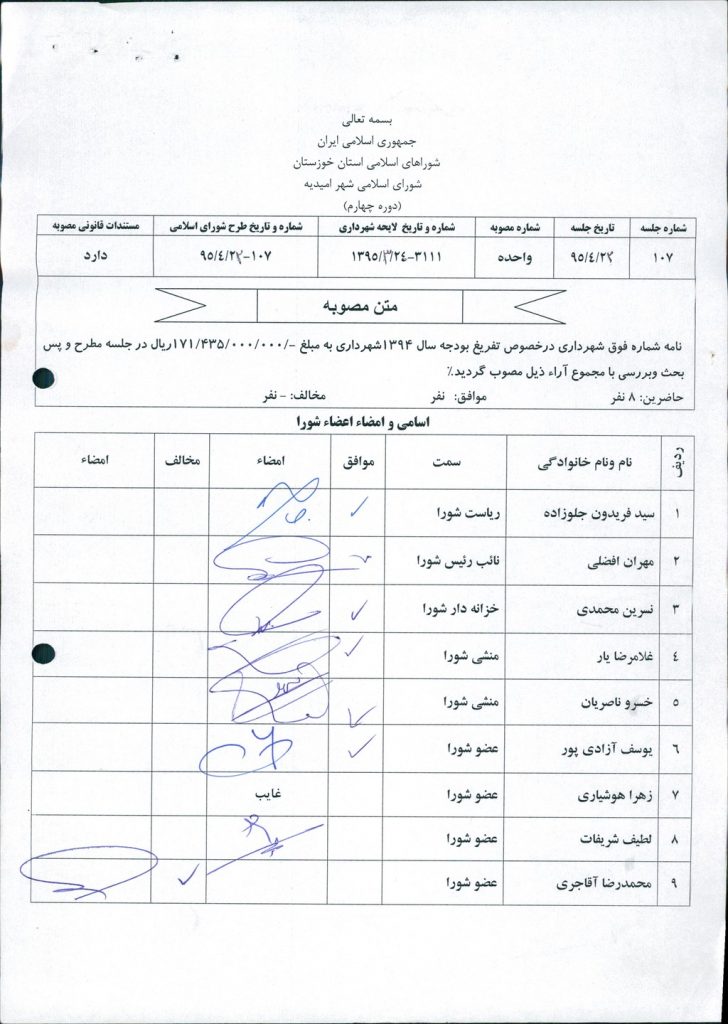 بسمه تعالی
جمهوری اسلامی ایران
شوراهای اسلامی استان خوزستان
شورای اسلامی شهر امیدیه
(دوره چهارم)
شماره جلسه تاریخ جلسه شماره مصوبه شماره و تاریخ لایحه شهرداری شماره و تاریخ طرح شورای اسلامی مستندات قانونی مصوبه
۱۰۷ واحده دارد
متن مصوبه
نامه شماره فوق شهرداری درخصوص تفریغ بودجه سال ۱۳۹۴شهرداری به مبلغ -/۱۷۱/۴۳۵/۰۰۰/۰۰۰ریال در جلسه مطرح و پس
بحث وبررسی با مجموع آراء ذیل مصوب گردید.٪
حاضرین: ۸ نفر موافق: نفر مخالف: - نفر
اسامی و امضاء اعضاء شورا
ردیف نام ونام خانوادگی سمت موافق امضاء مخالف امضاء
۱ سید فریدون جلوزاده ریاست شورا
۲ مهران افضلی نائب رئیس شورا
۳ نسرین محمدی خزانه دار شورا
۴ غلامرضا یار منشی شورا
۵ خسرو ناصریان منشی شورا
۶ یوسف آزادی پور عضو شورا
۷ زهرا هوشیاری عضو شورا غایب
۸ لطیف شریفات عضو شورا
۹ محمدرضا آقاجری عضو شورا